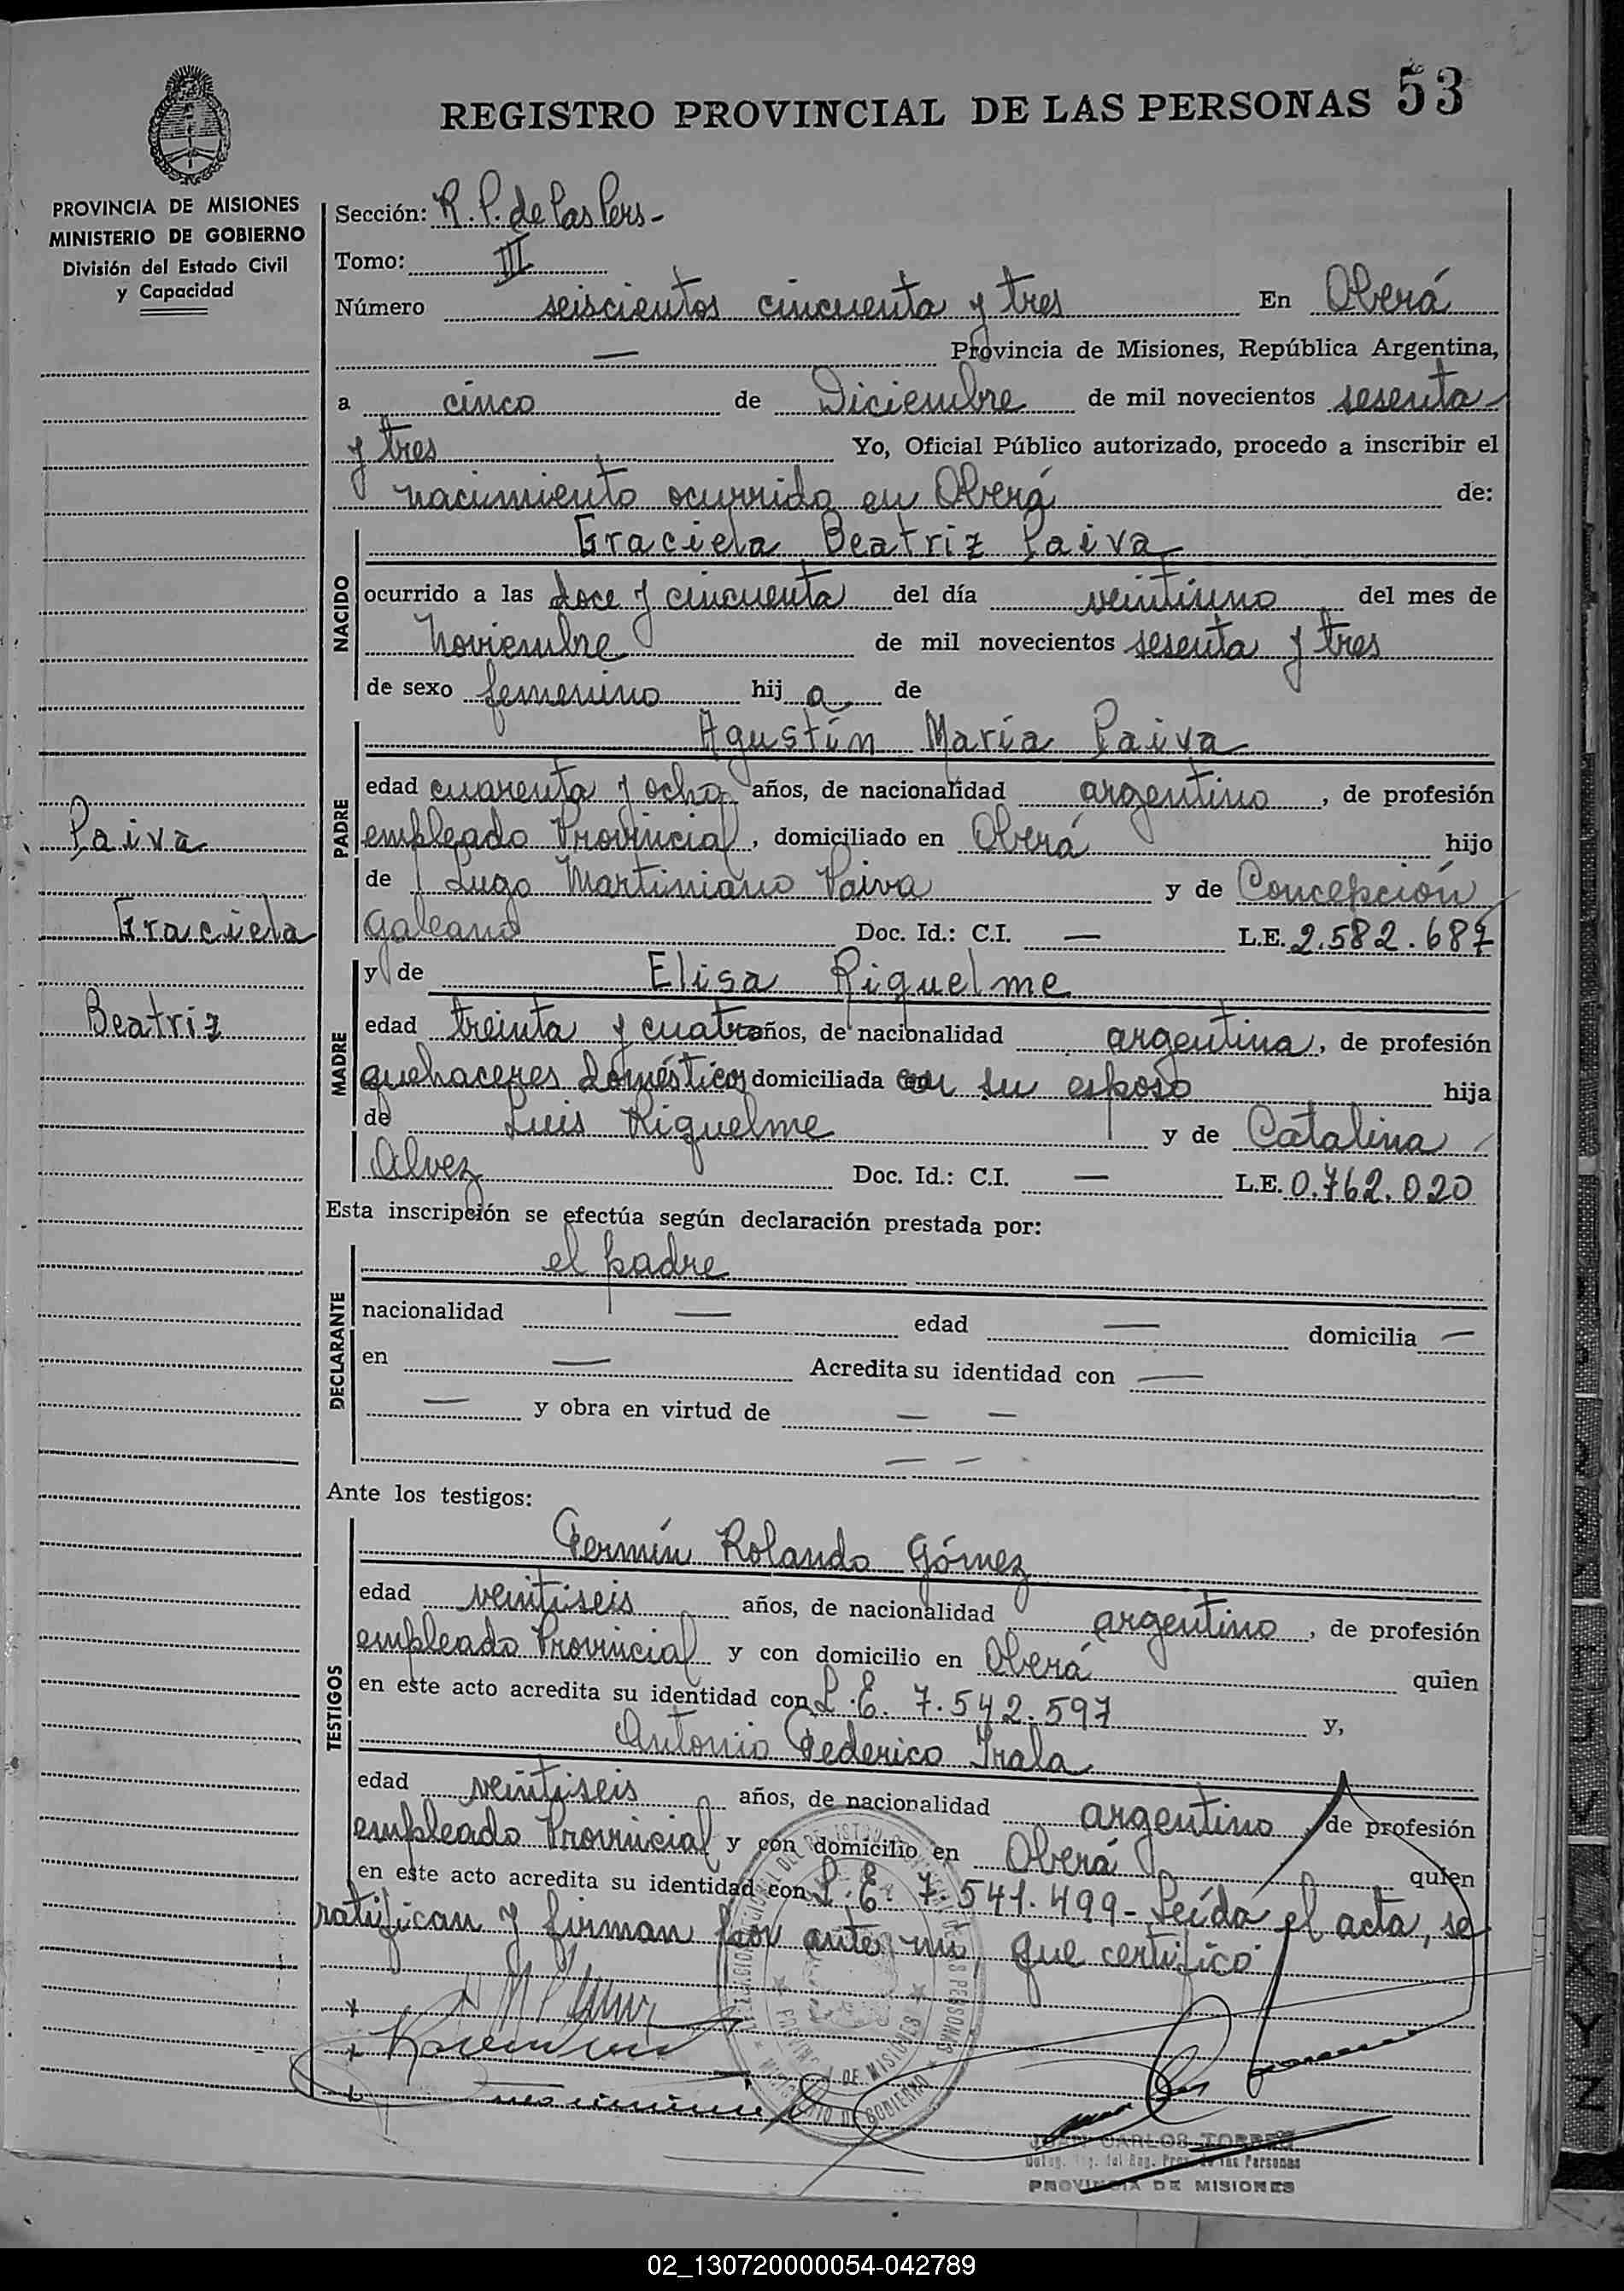 REGISTRO PROVINCIAL DE LAS PERSONAS 53
PROVINCIA DE MISIONES
MINISTERIO DE GOBIERNO
División del Estado Civil
y Capacidad
Sección: R. P. de las Pers-
Tomo: III
Número seiscientos cincuenta y tres En Oberá
— Provincia de Misiones, República Argentina,
a cinco de Diciembre de mil novecientos sesenta
y tres Yo, Oficial Público autorizado, procedo a inscribir el
nacimiento ocurrido en Oberá de:
NACIDO
Graciela Beatriz Paiva
ocurrido a las doce y cincuenta del día veintiuno del mes de
Noviembre de mil novecientos sesenta y tres
de sexo femenino hij a de
PADRE
Agustín María Paiva
edad cuarenta y ocho años, de nacionalidad argentino, de profesión
empleado Provincial, domiciliado en Oberá hijo
de Lugo Martiniano Paiva y de Concepción
Galeano Doc. Id.: C.I. — L.E. 2.582.687
Paiva
Graciela
Beatriz
MADRE
y de Elisa Riquelme
edad treinta y cuatro años, de nacionalidad argentina, de profesión
quehaceres domésticos domiciliada con su esposo hija
de Luis Riquelme y de Catalina
Alvez Doc. Id.: C.I. — L.E. 0.762.020
Esta inscripción se efectúa según declaración prestada por:
DECLARANTE
el padre
nacionalidad — edad — domicilia —
en — Acredita su identidad con —
— y obra en virtud de — —
— —
Ante los testigos:
TESTIGOS
Fermín Rolando Gómez
edad veintiseis años, de nacionalidad argentino, de profesión
empleado Provincial y con domicilio en Oberá quien
en este acto acredita su identidad con L.E. 7.542.597 y,
Antonio Federico Irala
edad veintiseis años, de nacionalidad argentino, de profesión
empleado Provincial y con domicilio en Oberá quien
en este acto acredita su identidad con L.E. 7.541.499- Leída el acta, se
ratifican y firman por ante mi que certifico
JUAN CARLOS TORRES
Deleg. Reg. del Reg. Prov. de las Personas
PROVINCIA DE MISIONES
X
Y
Z
02_130720000054-042789